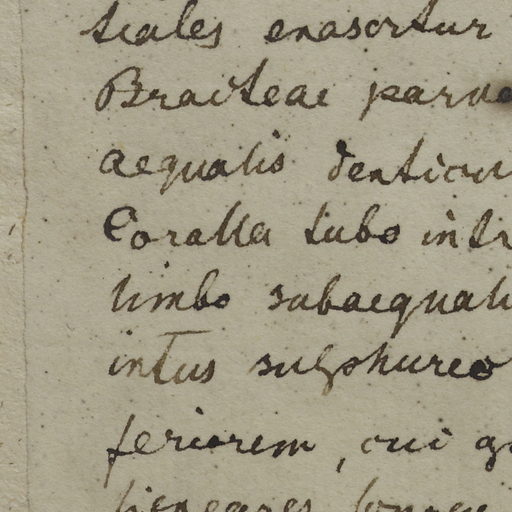 tiales enascrtur
Bracteae parva
aequalis denticu
Coralla tubo intr
limbo subaequali
intus sulphureo
feriorem, cui q